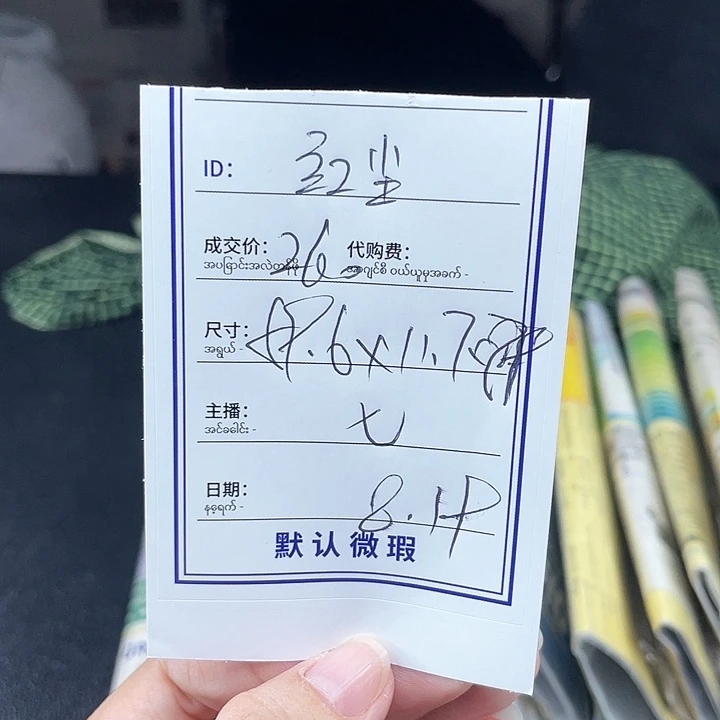 ID: 红尘
成交价: 26 代购费:
အပြောင်းအလဲတန်ဖိုး အကျဉ်းစီ ဝယ်ယူမှုအခက် -
尺寸: .6×11.7
အရွယ် -
主播: 七
အင်ခခေါင်း -
日期: 8.14
နေ့ရက် -
默认微瑕